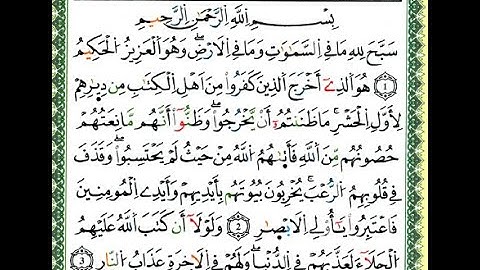 بِسْمِ اللَّهِ الرَّحْمَٰنِ الرَّحِيمِ
سَبَّحَ لِلَّهِ مَا فِي السَّمَٰوَٰتِ وَمَا فِي الْاَرْضِ ۖ وَهُوَ الْعَزِيزُ الْحَكِيمُ
۝١ هُوَ الَّذِي أَخْرَجَ الَّذِينَ كَفَرُوا مِنْ اَهْلِ الْكِتَٰبِ مِن دِيَٰرِهِمْ
لِأَوَّلِ الْحَشْرِ ۚ مَا ظَنَنتُمْ أَن يَّخْرُجُوا ۖ وَظَنُّوٓا أَنَّهُم مَّانِعَتُهُمْ
حُصُونُهُم مِّنَ اللَّهِ فَأَتَىٰهُمُ اللَّهُ مِنْ حَيْثُ لَمْ يَحْتَسِبُوا ۖ وَقَذَفَ
فِي قُلُوبِهِمُ الرُّعْبَ ۚ يُخْرِبُونَ بُيُوتَهُم بِأَيْدِيهِمْ وَأَيْدِي الْمُومِنِينَ
فَاعْتَبِرُوا يَٰٓأُولِي الْاَبْصَٰرِ ۝٢ وَلَوْلَآ أَن كَتَبَ اللَّهُ عَلَيْهِمُ
الْجَلَآءَ لَعَذَّبَهُمْ فِي الدُّنْيَا ۖ وَلَهُمْ فِي الْاٰخِرَةِ عَذَابُ النَّارِ ۝٣